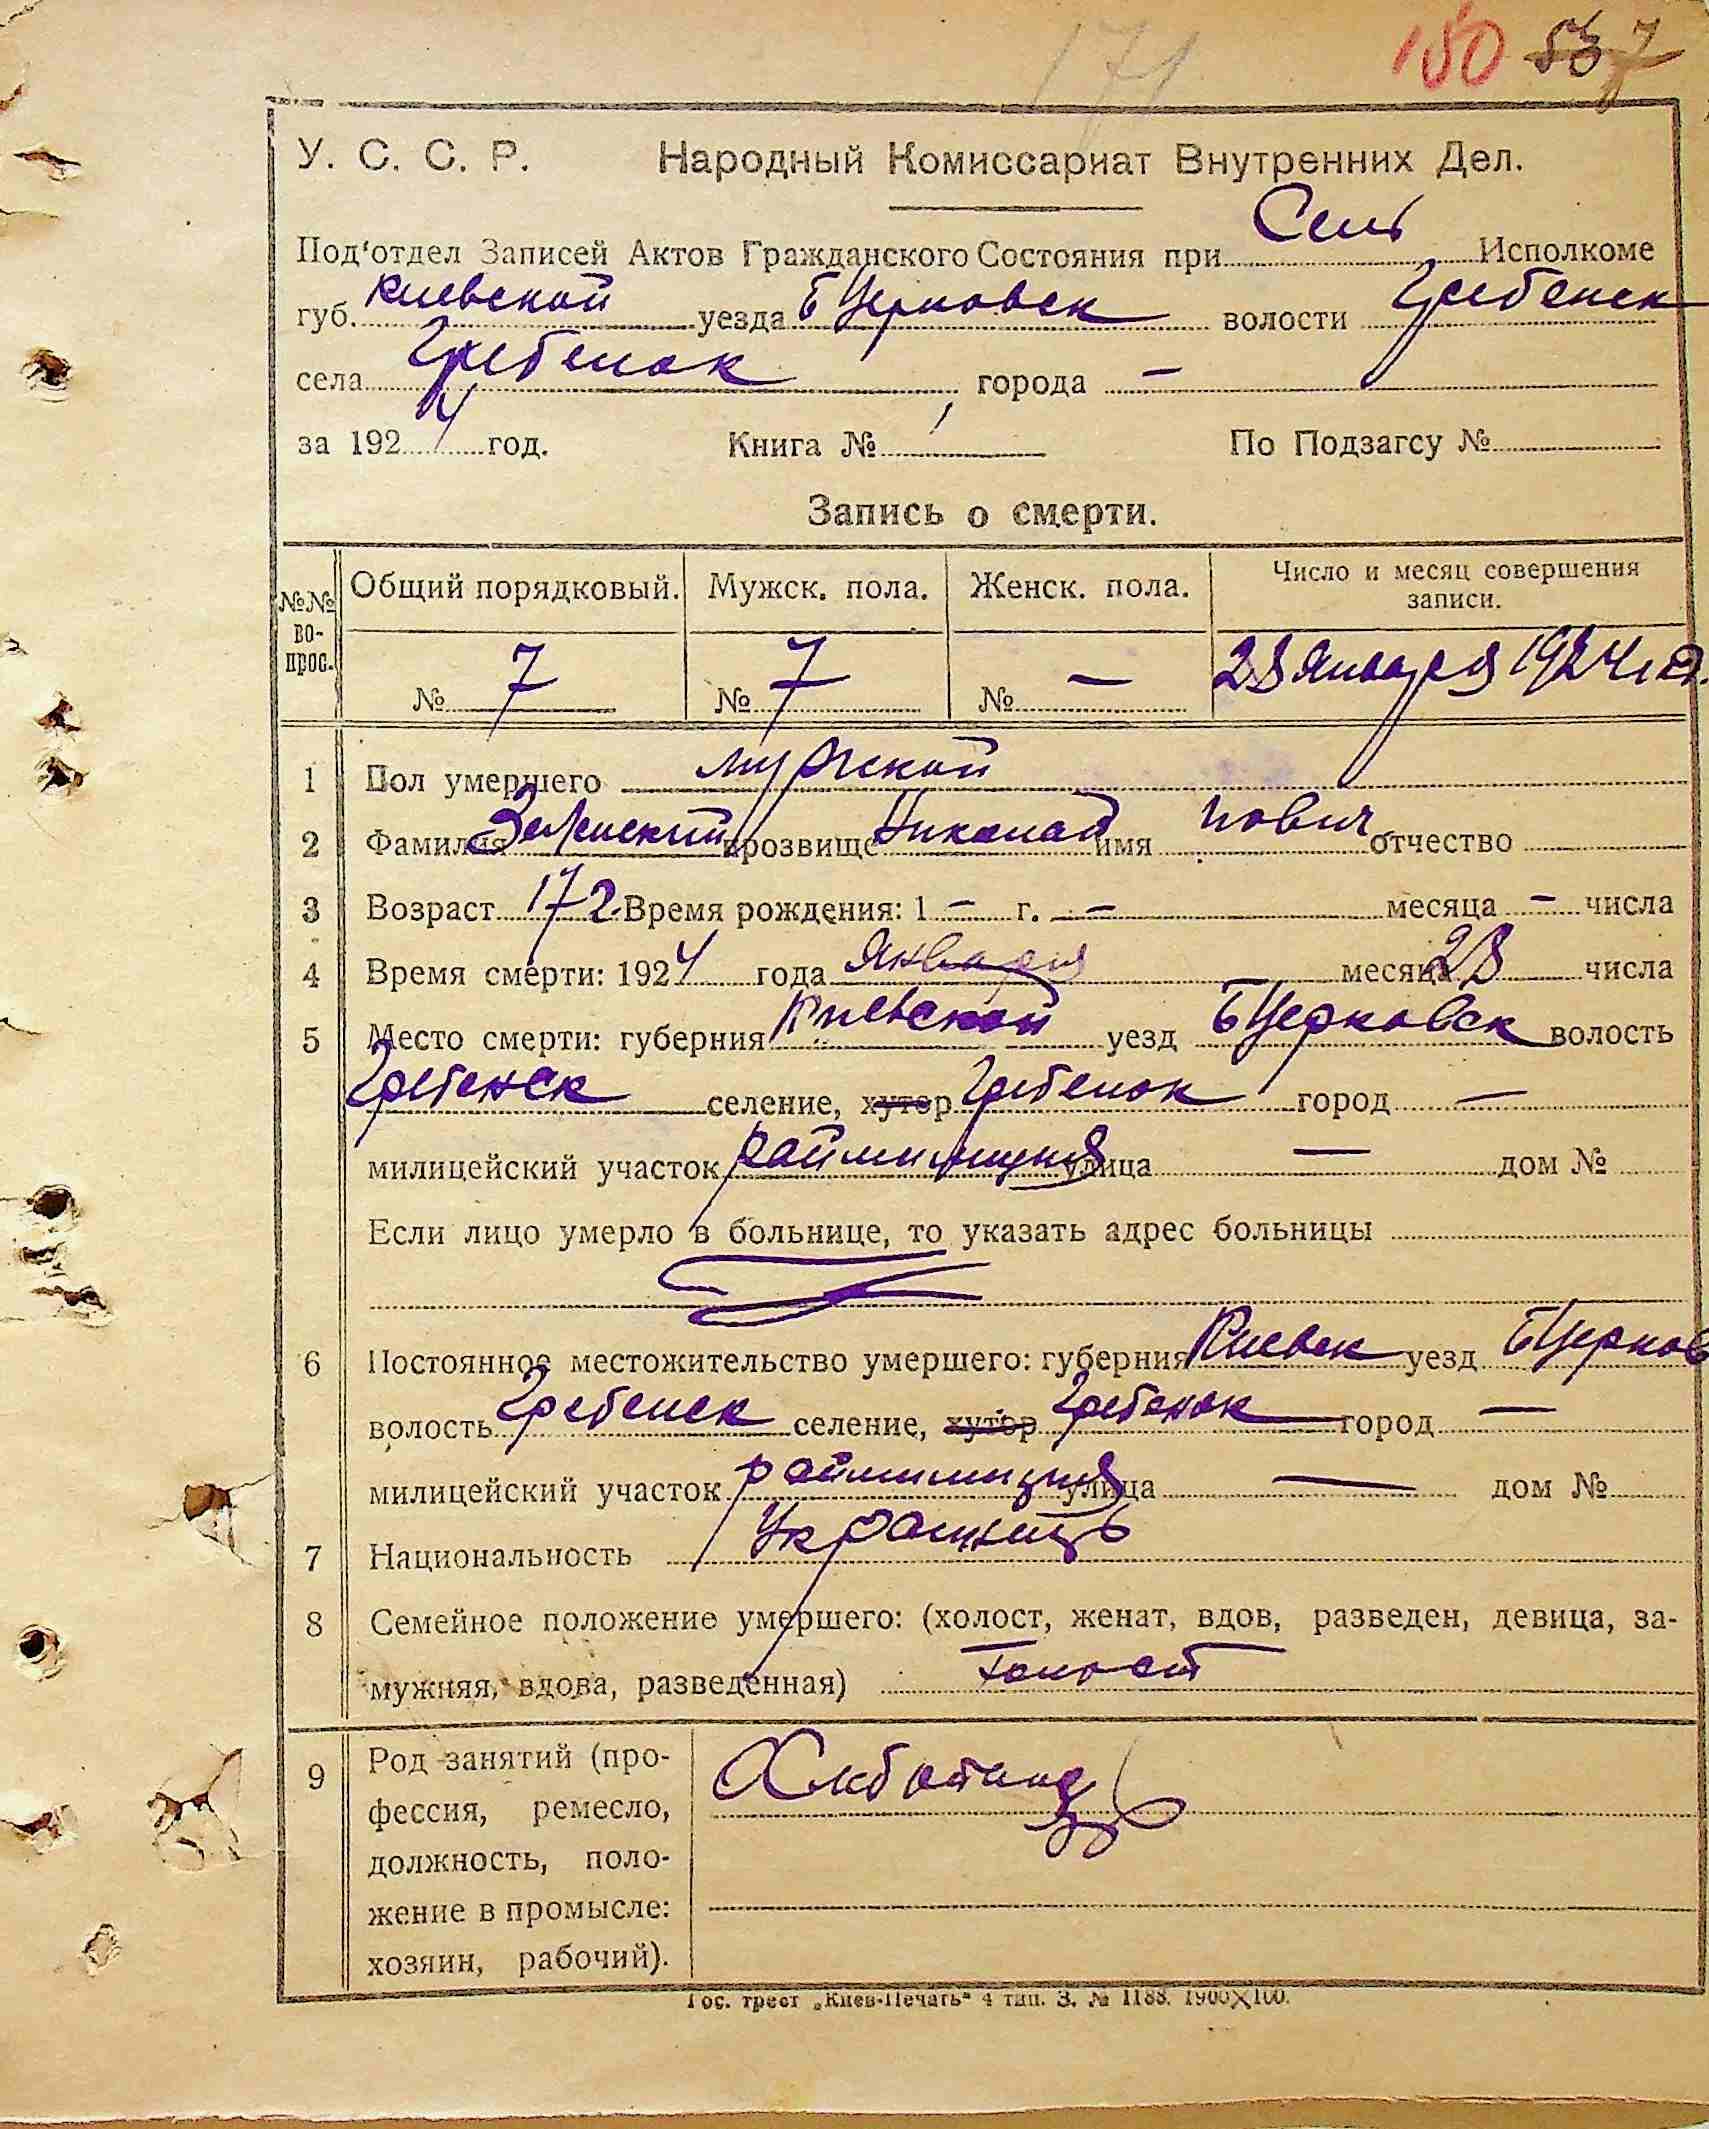 171 150 53 7
У. С. С. Р. Народный Комиссариат Внутренних Дел.
Под'отдел Записей Актов Гражданского Состояния при Сель Исполкоме
губ. Киевской уезда БЦерковск волости Гребенск
села Гребенок города —
за 1924 год. Книга № По Подзагсу №
Запись о смерти.
№№ вопрос. Общий порядковый. Мужск. пола. Женск. пола. Число и месяц совершения записи.
№ 7 № 7 № — 28 Января 1924
1 Пол умершего мужской
2 Фамилия прозвище Николай имя отчество
3 Возраст 17 г. Время рождения: 1 — г. — месяца — числа
4 Время смерти: 1924 года Января месяца 28 числа
5 Место смерти: губерния Киевской уезд БЦерковск волость
Гребенск селение, хутор Гребенок город —
милицейский участок раймилиция улица — дом №
Если лицо умерло в больнице, то указать адрес больницы
6 Постоянное местожительство умершего: губерния Киевск уезд БЦерков
волость Гребенск селение, хутор Гребенок город —
милицейский участок раймилиция улица — дом №
7 Национальность Украинец
8 Семейное положение умершего: (холост, женат, вдов, разведен, девица, за-
мужняя, вдова, разведенная) Холост
9 Род занятий (про-
фессия, ремесло,
должность, поло-
жение в промысле:
хозяин, рабочий).
Гос. трест „Киев-Печать" 4 тип. З. № 1188. 1900×100.